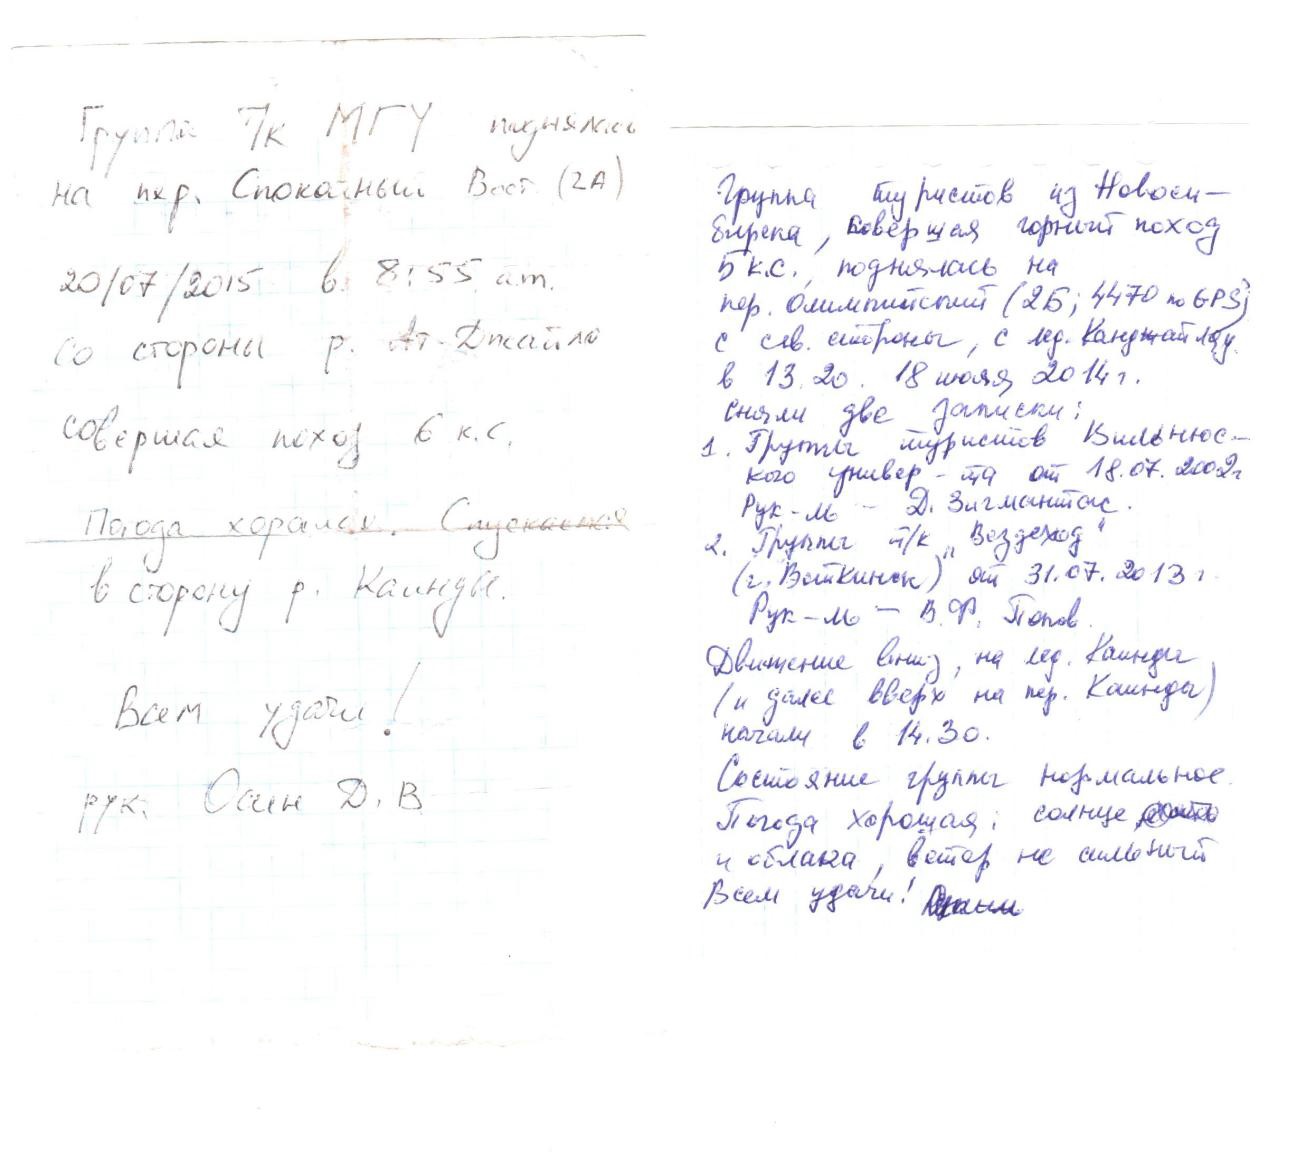 Группа Т/к МГУ поднялась
на пер. Спокойный Вост. (2А)
20/07/2015 в 8:55 am.
со стороны р. Ат-Джайло
совершая поход 6 к.с.
Погода хорошая. Спускаемся
в сторону р. Каинды.
Всем удачи!
рук. Осин Д. В.
Группа туристов из Новоси-
бирска, совершая горный поход
5 к.с., поднялась на
пер. Олимпийский (2Б; 4470 по GPS)
с сев. стороны, с лед. Канджайлау
в 13.20. 18 июля 2014г.
сняли две записки:
1. Группы туристов Вильнюс-
кого универ-та от 18.07.2002г
Рук-ль - Д. Зигмантас.
2. Группы т/к "Вездеход"
(г. Воткинск) от 31.07.2013г.
Рук-ль - В.Ф. Попов.
Движение вниз, на лед. Каинды
(и далее вверх на пер. Каинды)
начали в 14.30.
Состояние группы нормальное.
Погода хорошая: солнце
и облака, ветер не сильный
Всем удачи!